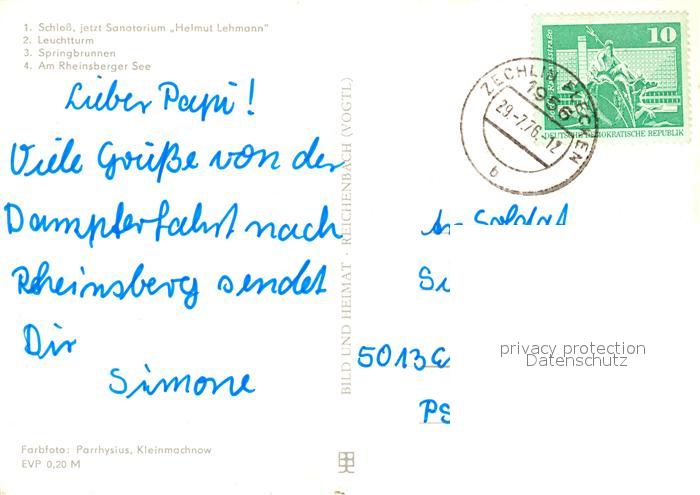 1. Schloß, jetzt Sanatorium „Helmut Lehmann"
2. Leuchtturm
3. Springbrunnen
4. Am Rheinsberger See
Lieber Papi!
Viele Grüße von der
Dampferfahrt nach
Rheinsberg sendet
Dir
Simone
Farbfoto: Parrhysius, Kleinmachnow
EVP 0,20 M
BILD UND HEIMAT · REICHENBACH (VOGTL)
10
DEUTSCHE DEMOKRATISCHE REPUBLIK
ZECHLIN FLECKEN
1956
29.-7.76.-12
b
5013
privacy protection
Datenschutz